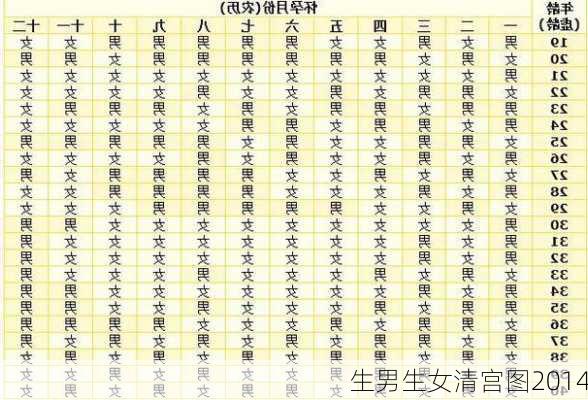 怀孕月份(农历)
年龄(虚龄) 一 二 三 四 五 六 七 八 九 十 十一 十二
19 男 女 男 女 男 男 男 男 男 男 女 女
20 女 男 女 男 男 男 男 男 男 女 男 男
21 男 女 女 女 女 女 女 女 女 女 女 女
22 女 男 男 女 男 女 女 男 女 女 女 女
23 男 男 女 男 男 女 男 女 男 男 男 女
24 男 女 男 男 女 男 男 女 女 女 女 女
25 女 男 男 女 女 男 女 男 男 男 男 男
26 男 女 男 女 女 男 女 男 女 女 女 女
27 女 男 女 男 女 女 男 男 男 男 女 男
28 男 女 男 女 女 女 男 男 男 男 女 女
29 女 男 女 女 男 男 男 男 男 女 女 女
30 男 女 女 女 女 女 女 女 女 女 男 男
31 男 女 男 女 女 女 女 女 女 女 女 男
32 男 女 男 女 女 女 女 女 女 女 女 男
33 女 男 女 男 女 女 女 男 女 女 女 男
34 男 女 男 女 女 女 女 女 女 女 男 男
35 男 男 女 男 女 女 女 男 女 女 男 男
36 女 男 男 女 男 女 女 女 男 男 男 男
37 男 女 男 男 女 男 女 男 女 男 女 男
38 女 男 女 男 男 女 男 女 男 女 男 女
生男生女清宫图2014